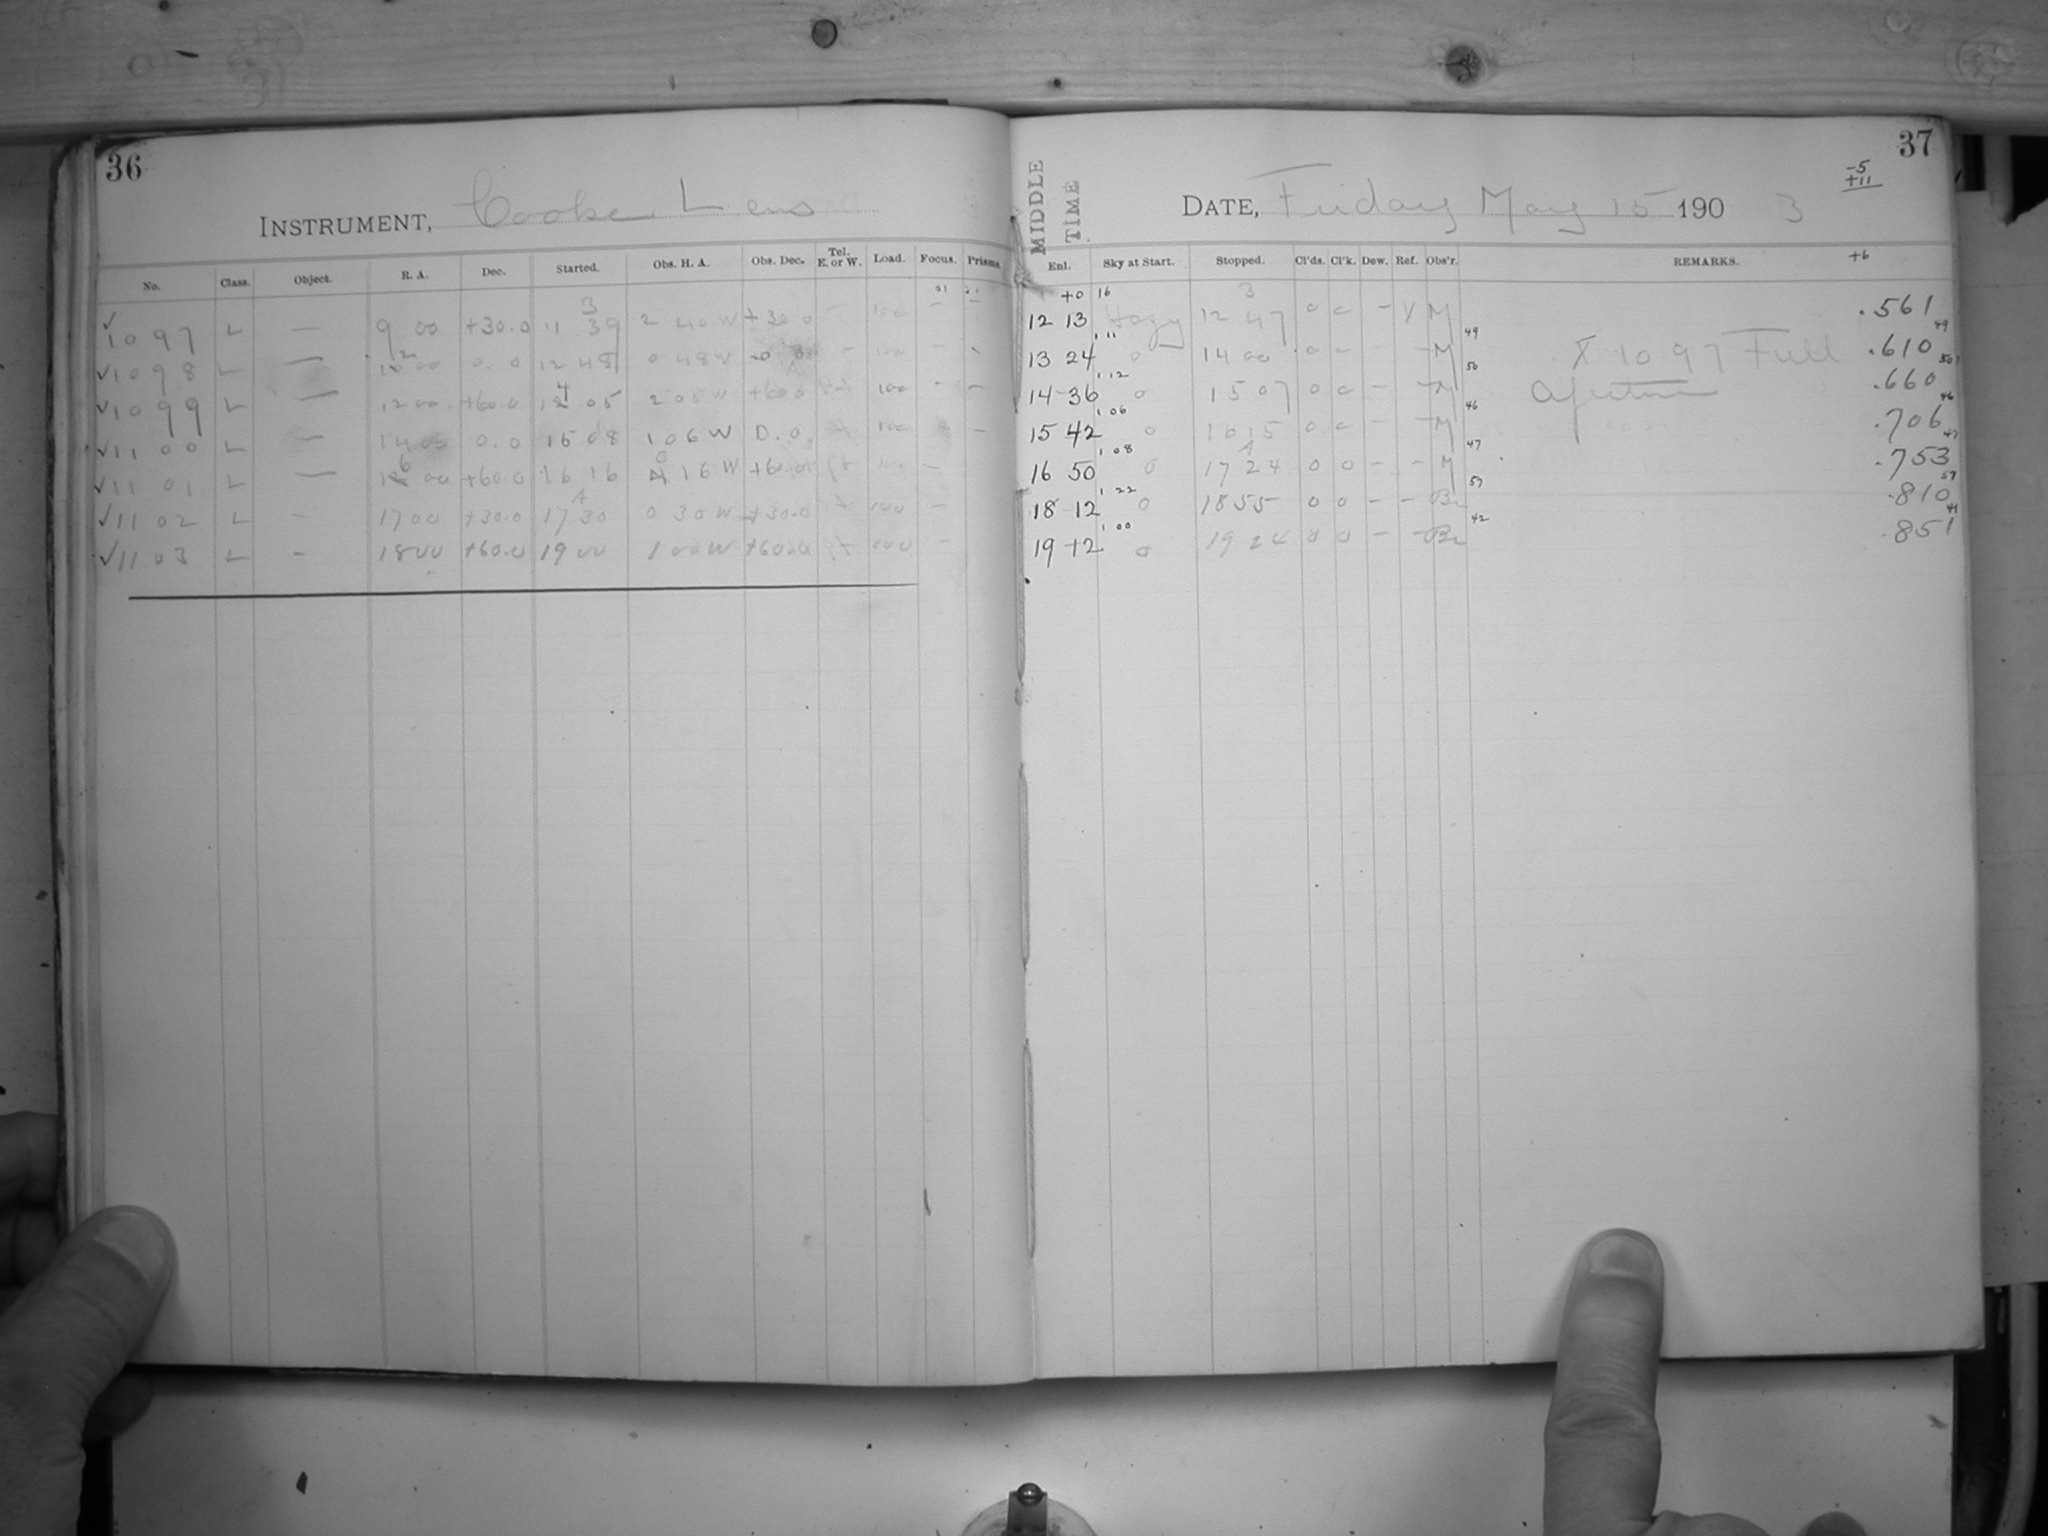 36
INSTRUMENT, Cooke Lens
No. Class. Object. R. A. Dec. Started. Obs. H. A. Obs. Dec. Tel. E. or W. Load. Focus. Prisms.
3
✓1097 L — 9 00 +30.0 11 39 2 40 W +30 0 — 100 — —
✓1098 L — 12 00 0.0 12 48 0 48 W — 100 — -
✓1099 L — 12 00 +60.0 14 05 2 05 W +60.0 100 - —
✓1100 L — 14 00 0.0 15 08 1 06 W 0.0 100 —
✓1101 L — 16 00 +60.0 16 16 0 16 W +60.0 —
✓1102 L - 17 00 +30.0 17 30 0 30 W +30.0 100 —
✓1103 L - 18 00 +60.0 19 00 1 00 W +60.0 100 -
37
-5
+11
MIDDLE TIME
DATE, Friday May 15 1903
Enl. Sky at Start. Stopped. Cl'ds. Cl'k. Dew. Ref. Obs'r. REMARKS. +6
+0 16 3
12 13 Hazy 12 47 0 c - Y M .561
1 11 49 49
13 24 0 14 00 0 c - - M X 1097 Full .610
1 12 50 50
14 36 0 15 07 0 c - - M Aperture .660
1 06 46 46
15 42 0 16 15 0 c - - M .706
1 08 47 47
16 50 0 17 24 0 0 - - M .753
1 22 57 57
18 12 0 18 55 0 0 - - .810
1 00 42 41
19 12 0 19 24 0 0 - - .851